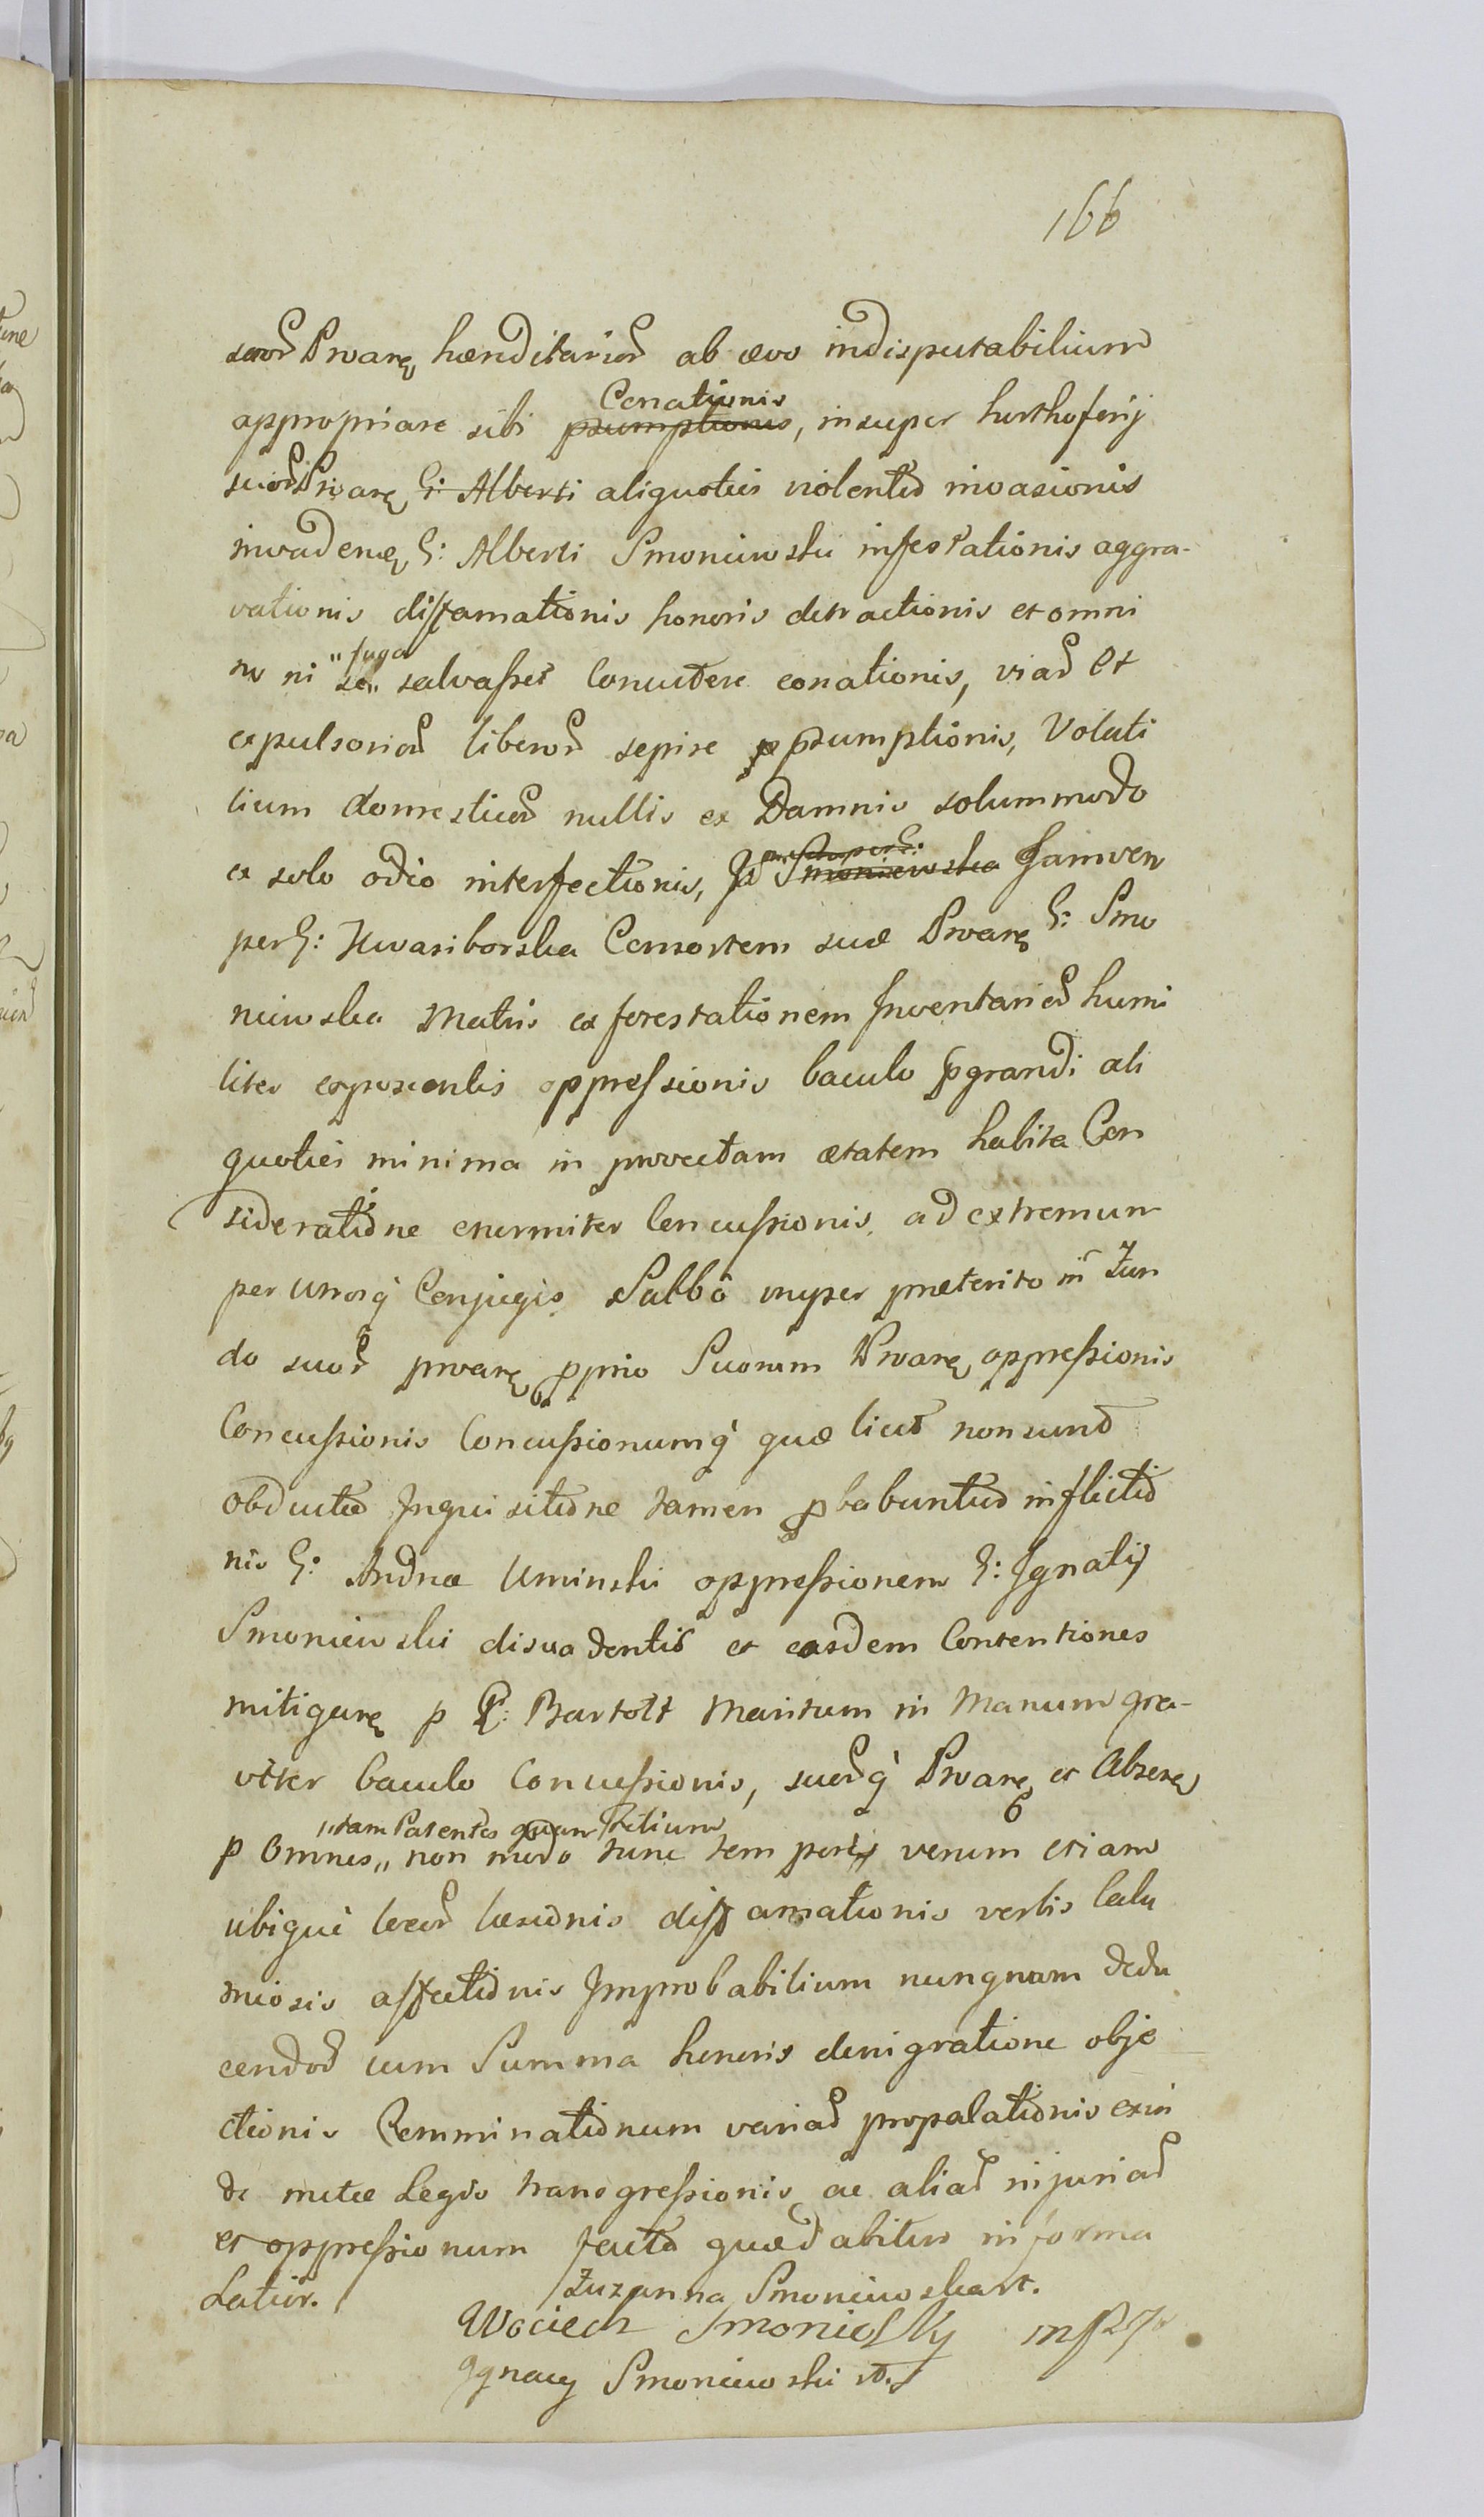 166
suor Prvare hæreditarior ab ævo indisputabilium
appropriare sibi Conationis, insuper horthoferij
suor Prvare G: Alberti aliquoties violenter invasionis
invadenē G: Alberti Smoniewski infestationis aggra-
vationis diffamationis honoris detractionis et omni
no ni "fuga se" salvasset Concutere conationis, viar et
expulsorior liberor sepire præsumptionis, Volati
lium domesticor nullis ex Damnis solummodo
ex solo odio interfectionis, Smoniewska Jamven
per G: Kwasiborska Consortem suæ Prvare G: Smo
niewska Matris ex forestationem Inventarior humi
liter exposcentis oppressionis baculo prægrandi ali
quoties minima in provectam ætatem habita Con
sideratione enormiter Concussionis, ad extremum
per utrosq Conjuges Sabbo nuper præterito in Fun
do suor prvare pprio Suorum Prvare oppressionis
Concussionis Concussionumq quæ licet non sunt
obductæ Inquisitione tamen pbabuntur inflictio
nis G: Andræ Uminski oppressionem G: Ignatij
Smoniewski disuadentis et easdem Contentiones
mitigare p G: Bartolt Maritum in Manum gra-
viter baculo Concussionis, suorq Prvare et Absere
p Omnes "tam Parentes quam Filium" non modo tunc temporis verum etiam
ubiqui locor læsionis diffamationis verbis Calu
mniosis affectionis Improbabilium nunquam dedu
cendor cum Summa honoris denigratione obje
ctionis Comminationum variar propalationis exin
de metæ Legis transgressionis, ac aliar injuriar
et oppressionum facta quæd abitur in forma
Latior.
Zuzanna Smoniewska
Wociech Smoniefky mp
Ignacy Smoniewski